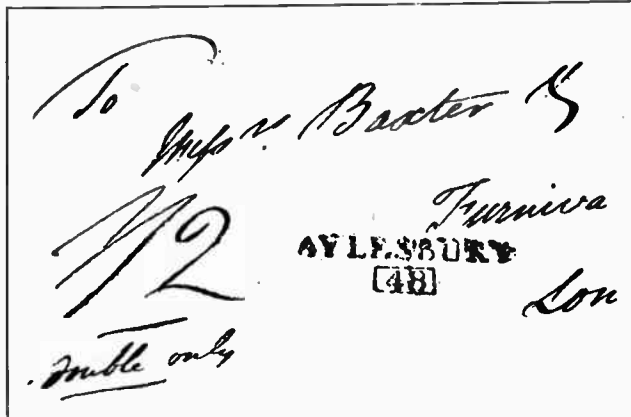 To
Messrs Baxter &
Furniva
1/2
AYLESBURY
[48]
Lon
double only